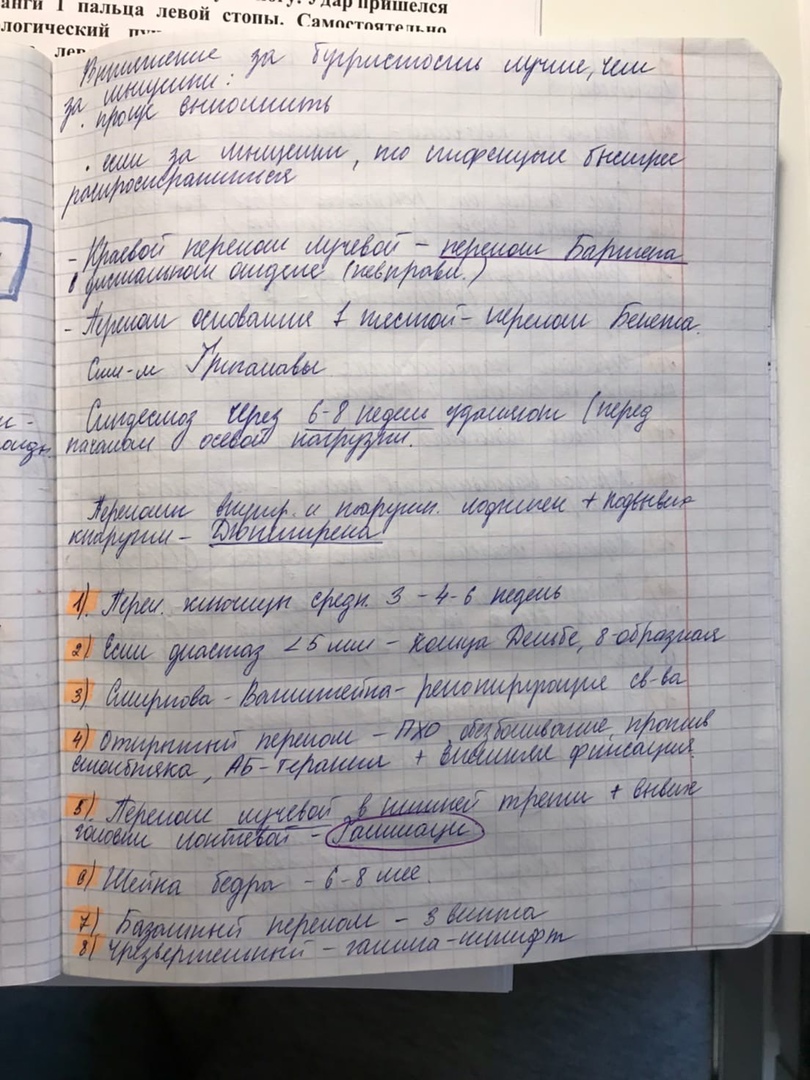 анги 1 пальца левой стопы. Самостоятельно
Вытяжение за бугристость лучше, чем
за мыщелки:
· проще выполнить
· если за мыщелки, то инфекция быстрее
распространится
- Краевой перелом лучевой - перелом Бартона
в дистальном отделе (невправл.)
- Перелом основания 1 пястной - перелом Бенета.
Сим-м
Синдесмоз через 6-8 недель удаляют (перед
началом осевой нагрузки.
Переломы внутр. и наружн. лодыжек + подвывих
кнаружи - Дюпюитрена
1). Перел. ключицы средн. 3 - 4-6 недель
2) Если диастаз < 5 мм - кольца Дельбе, 8-образная
3) Смирнова - Ванштейна - репонирующие св-ва
4) Открытый перелом - ПХО, обезболивание, против
столбняка, АБ-терапия + внешняя фиксация
5) Перелом лучевой в нижней трети + вывих
головки локтевой - Галиацци
6) Шейка бедра - 6-8 мес.
7) Базальный перелом - 3 винта
8) Чрезвертельный - гамма-штифт